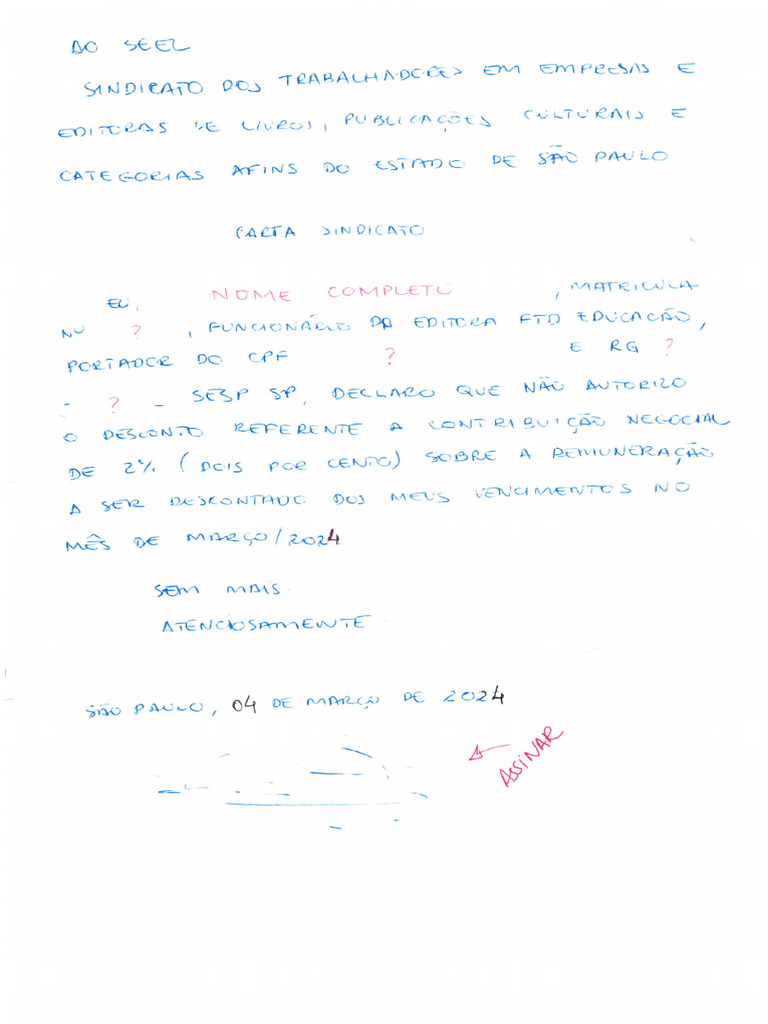 AO SEEL
SINDICATO DOS TRABALHADORES EM EMPRESAS E
EDITORAS DE LIVROS, PUBLICAÇÕES CULTURAIS E
CATEGORIAS AFINS DO ESTADO DE SÃO PAULO
CARTA SINDICATO
EU, NOME COMPLETO , MATRICULA
NO ? , FUNCIONÁRIO DA EDITORA FTD EDUCAÇÃO,
PORTADOR DO CPF ? E RG ?
- ? - SESP SP, DECLARO QUE NÃO AUTORIZO
O DESCONTO REFERENTE A CONTRIBUIÇÃO NEGOCIAL
DE 2% (DOIS POR CENTO) SOBRE A REMUNERAÇÃO
A SER DESCONTADO DOS MEUS VENCIMENTOS NO
MÊS DE MARÇO/2024
SEM MAIS
ATENCIOSAMENTE
SÃO PAULO, 04 DE MARÇO DE 2024
ASSINAR